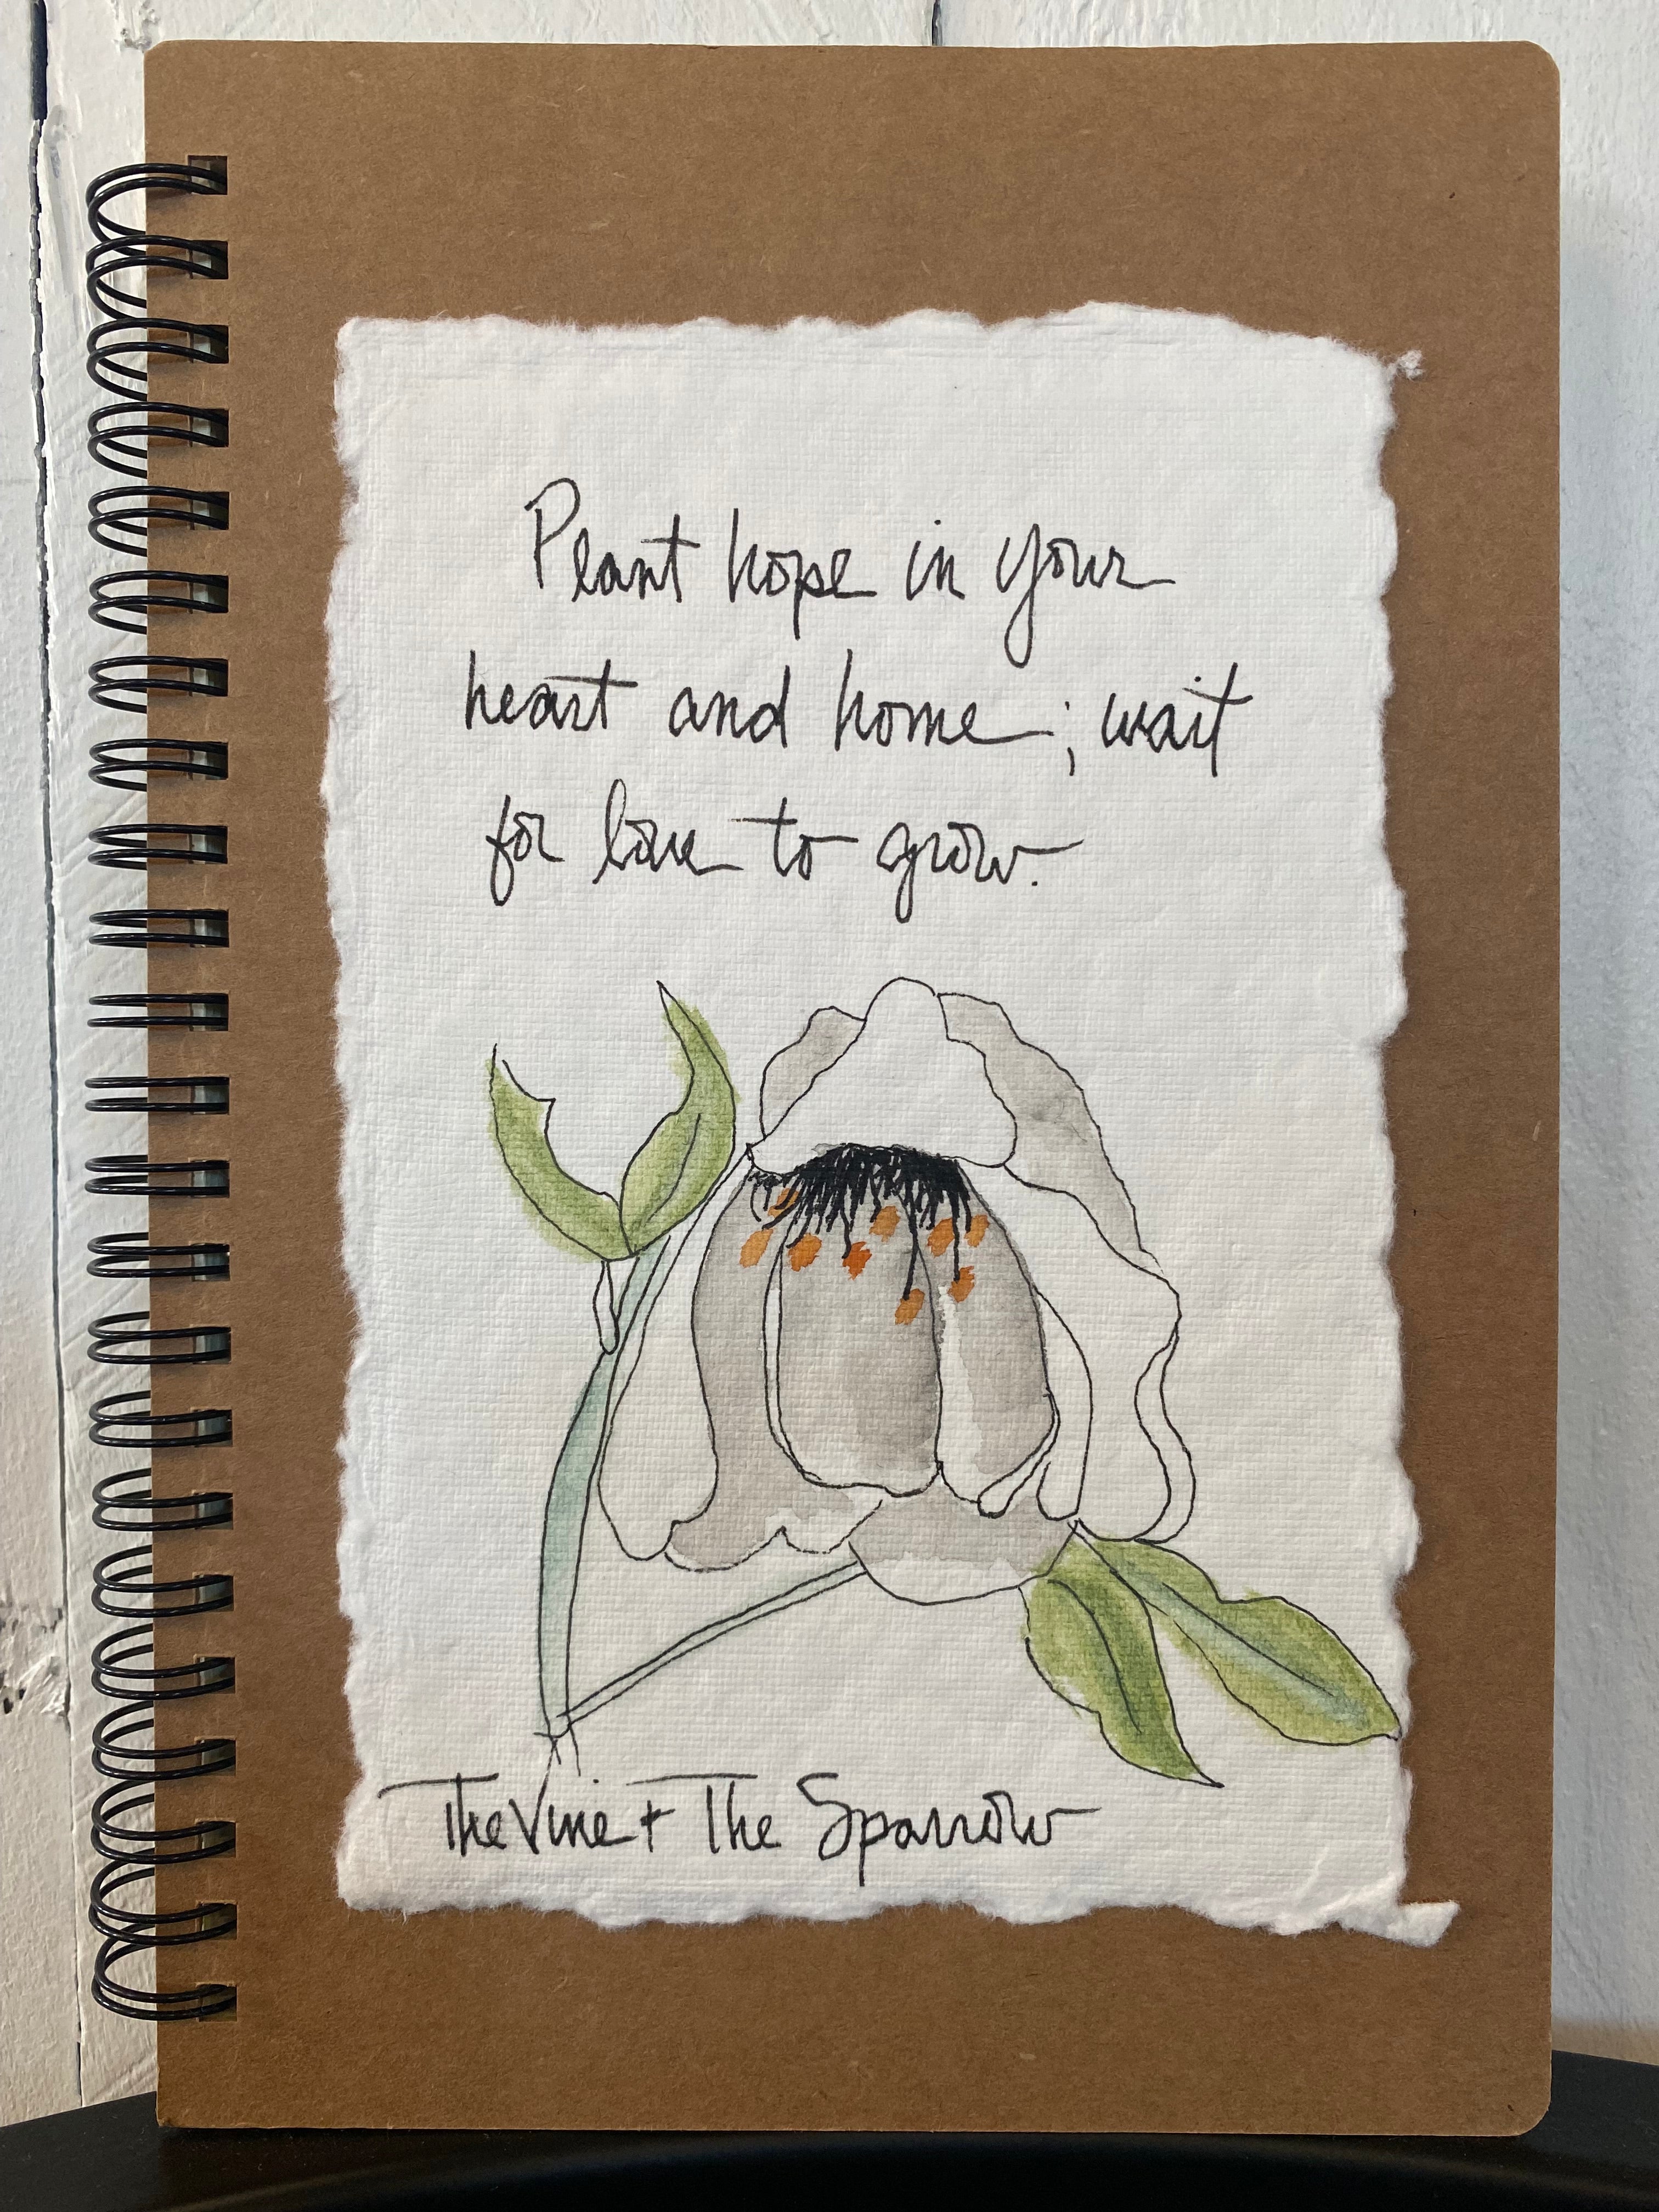 Plant hope in your
heart and home; wait
for love to grow.
The Vine + The Sparrow